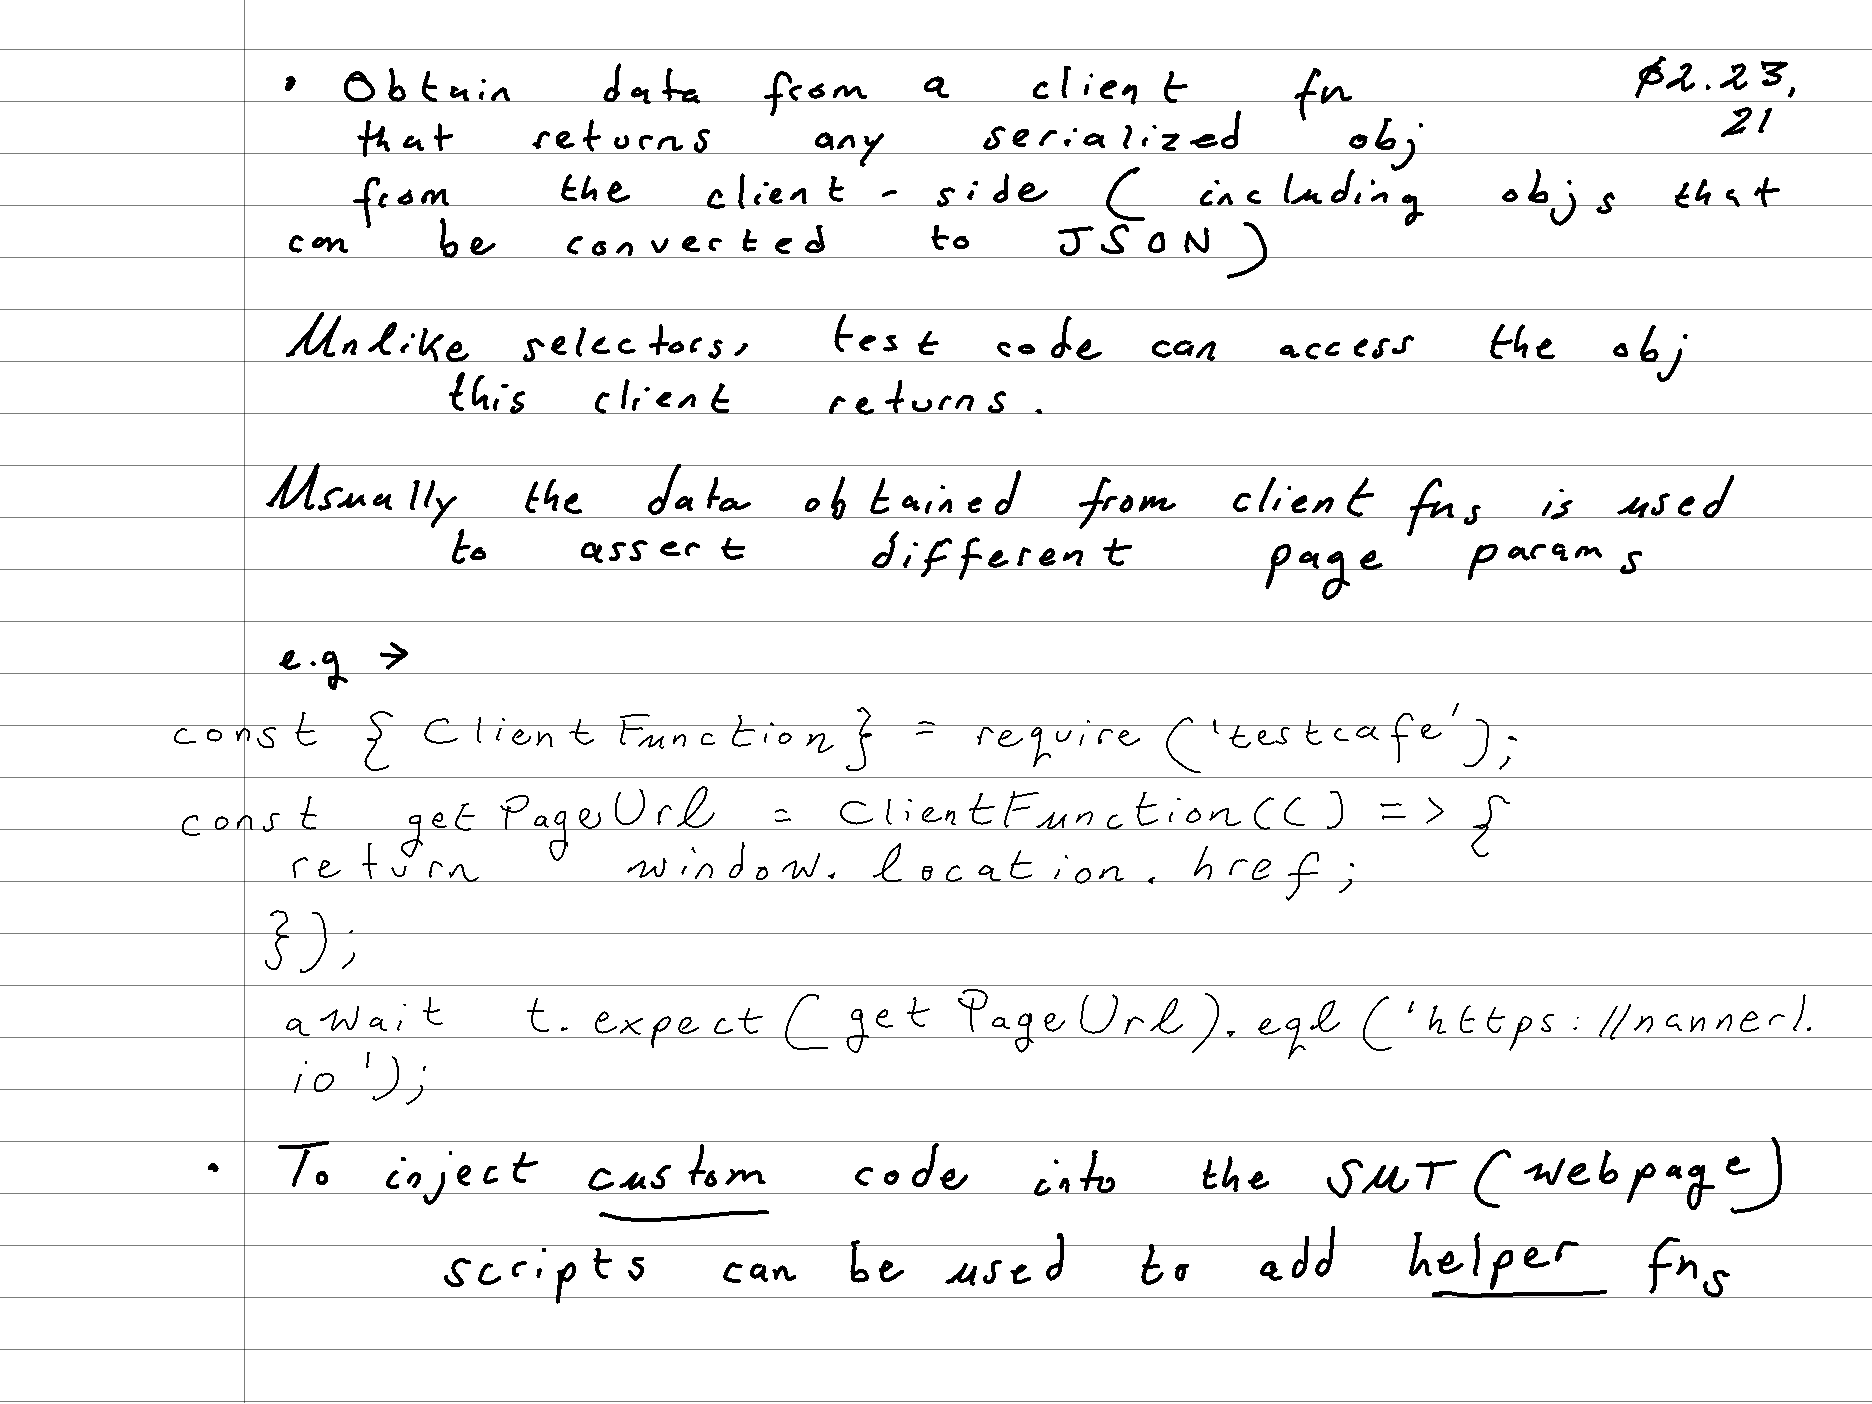 • Obtain data from a client fn
ø2.23,
21
that returns any serialized obj
from the client - side ( including objs that
can be converted to JSON)
Unlike selectors, test code can access the obj
this client returns.
Usually the data obtained from client fns is used
to assert different page params
e.g →
const { ClientFunction} = require ('testcafe');
const getPageUrl = ClientFunction(() => {
return window. location. href;
});
await t. expect (getPageUrl). eql ('https://nannerl.
io');
• To inject custom code into the SUT (webpage)
scripts can be used to add helper fns